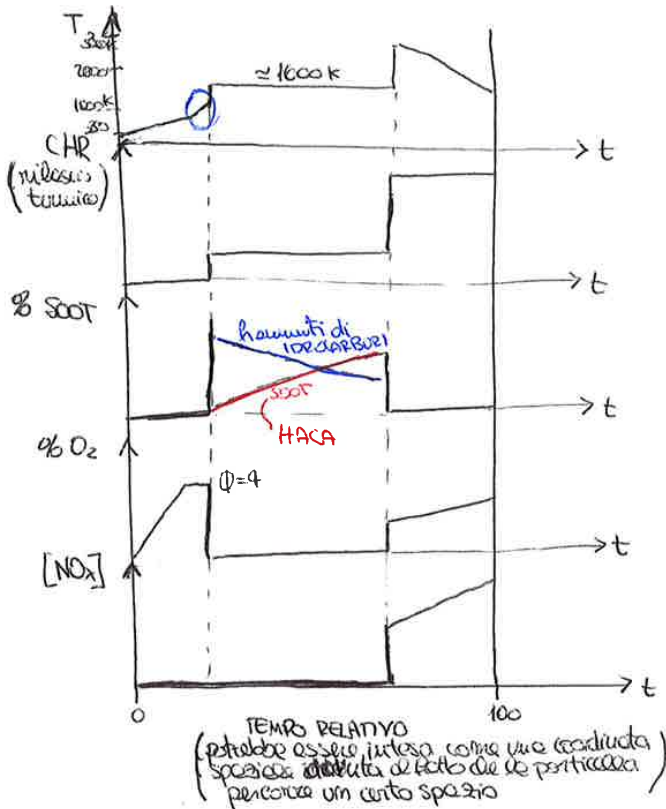 T
3000K
2000
1000K
300
≃1600K
t
CHR
(rilascio
termico)
t
% SOOT
frammenti di
IDROCARBURI
SOOT
HACA
t
% O₂
Φ=4
t
[NOx]
t
0
100
TEMPO RELATIVO
(potrebbe essere intesa come una coordinata
spaziale dovuta al fatto che la particella
percorre un certo spazio)